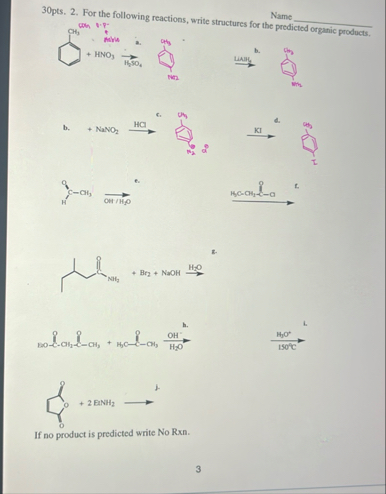 Name
30pts. 2. For the following reactions, write structures for the predicted organic products.
CH3
a.
CH3
b.
CH3
+ HNO3
H2SO4
NO2
LiAlH4
NH2
c.
CH3
d.
CH3
b. + NaNO2
HCl
N2
KI
I
e.
O
C-CH3
H
OH-/H2O
O
H3C-CH2-C-Cl
f.
g.
O
NH2
+ Br2 + NaOH
H2O
h.
i.
O O O
EtO-C-CH2-C-CH3 + H3C-C-CH3
OH-
H2O
H3O+
150°C
j.
O
O
O
+ 2 EtNH2
If no product is predicted write No Rxn.
3